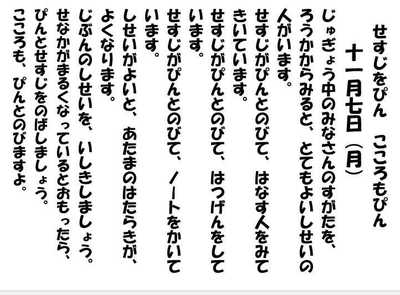 せすじをぴん　こころもぴん
十一月七日（月）
じゅぎょう中のみなさんのすがたを、
ろうかからみると、とてもよいしせいの
人がいます。
せすじがぴんとのびて、はなす人をみて
きいています。
せすじがぴんとのびて、はつげんをして
います。
せすじがぴんとのびて、ノートをかいて
います。
しせいがよいと、あたまのはたらきが、
よくなります。
じぶんのしせいを、いしきしましょう。
せなかがまるくなっているとおもったら、
ぴんとせすじをのばしましょう。
こころも、ぴんとのびますよ。